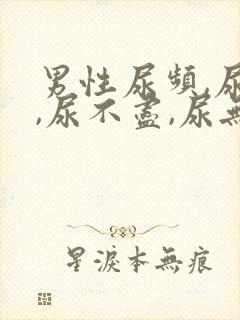 男性尿頻,尿
,尿不盡,尿無
星淚本無痕